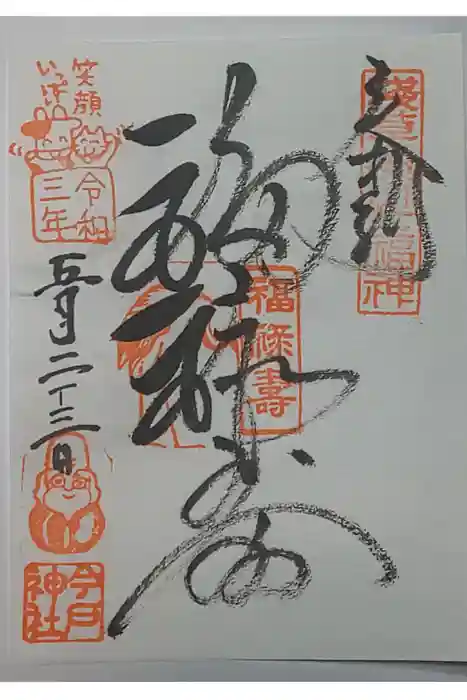 奉拝
福禄寿
福禄壽
笑顔
いっぱい
令和
三年
五月二十三日
今戸
神社